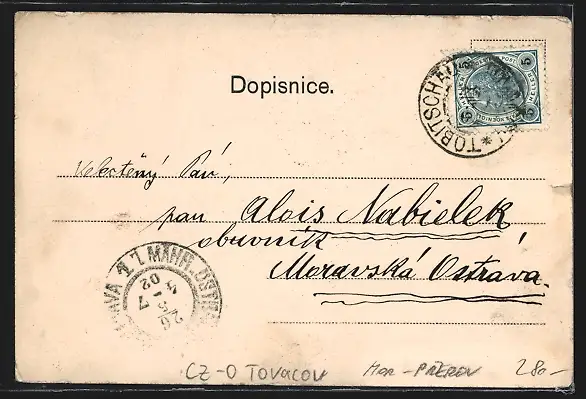 Dopisnice.
TOBITSCHAU
5 5
5 5
Velectěný Pán,
pan Alois Nabielek
obuvník
Moravská Ostrava.
MÄHR. OSTR
26
7
02
CZ-O TOVACOV Mor - PŘEROV 280-